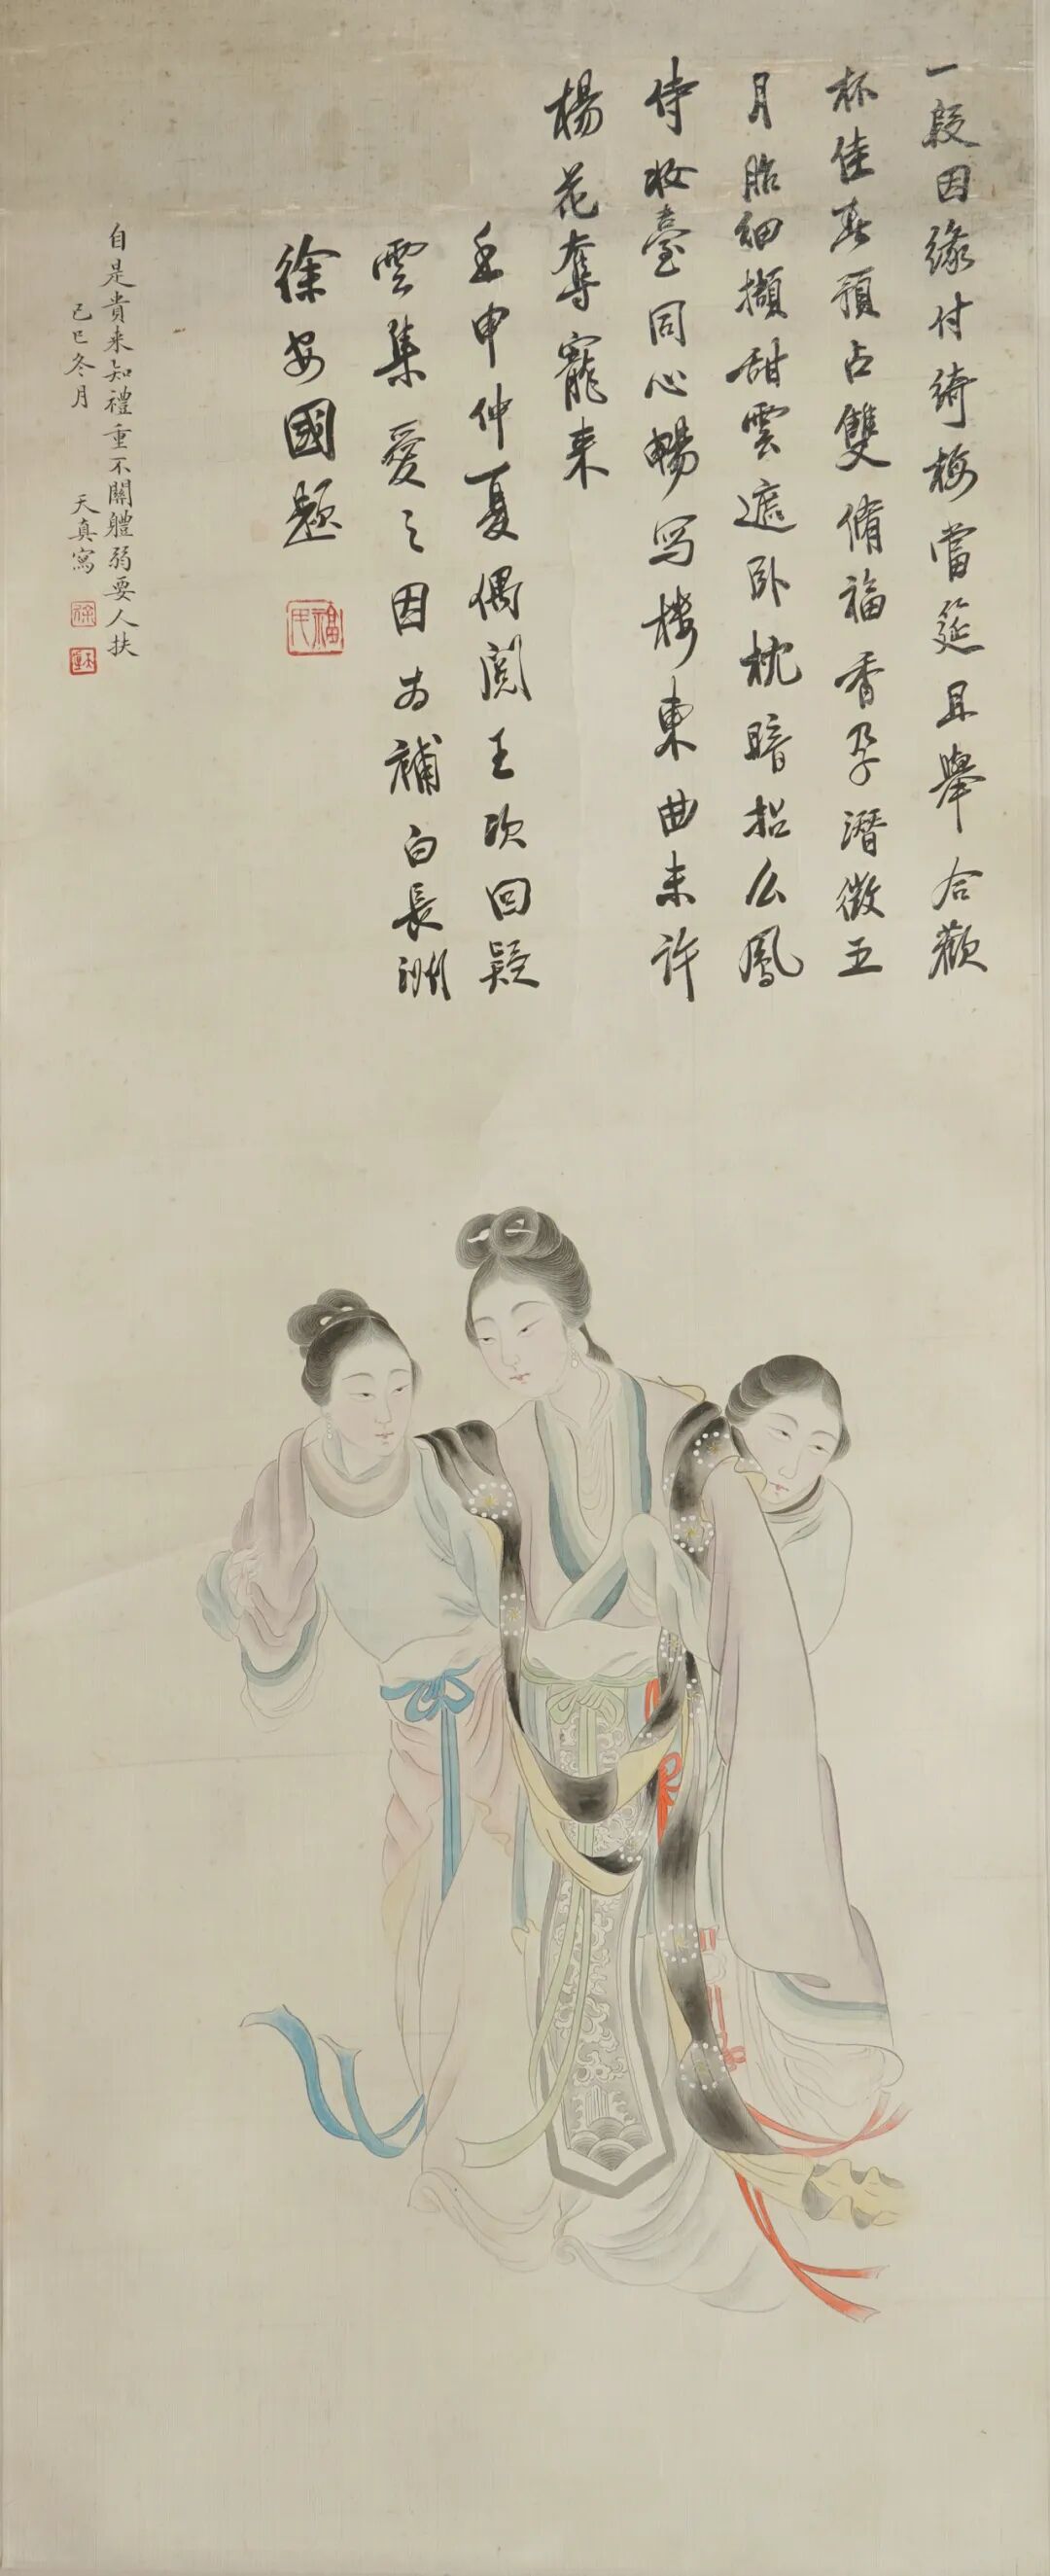 一段因緣付綺梅當筵且舉合歡
杯佳兆預占雙脩福香孕潛徵五
月胎細擷甜雲遮卧枕暗招么鳳
侍妝臺同心暢寫樓東曲未許
楊花奪寵来
壬申仲夏偶閱王次回疑
雲集愛之因為補白長洲
徐安國題
自是貴来知禮重不關體弱要人扶
己巳冬月 天真寫